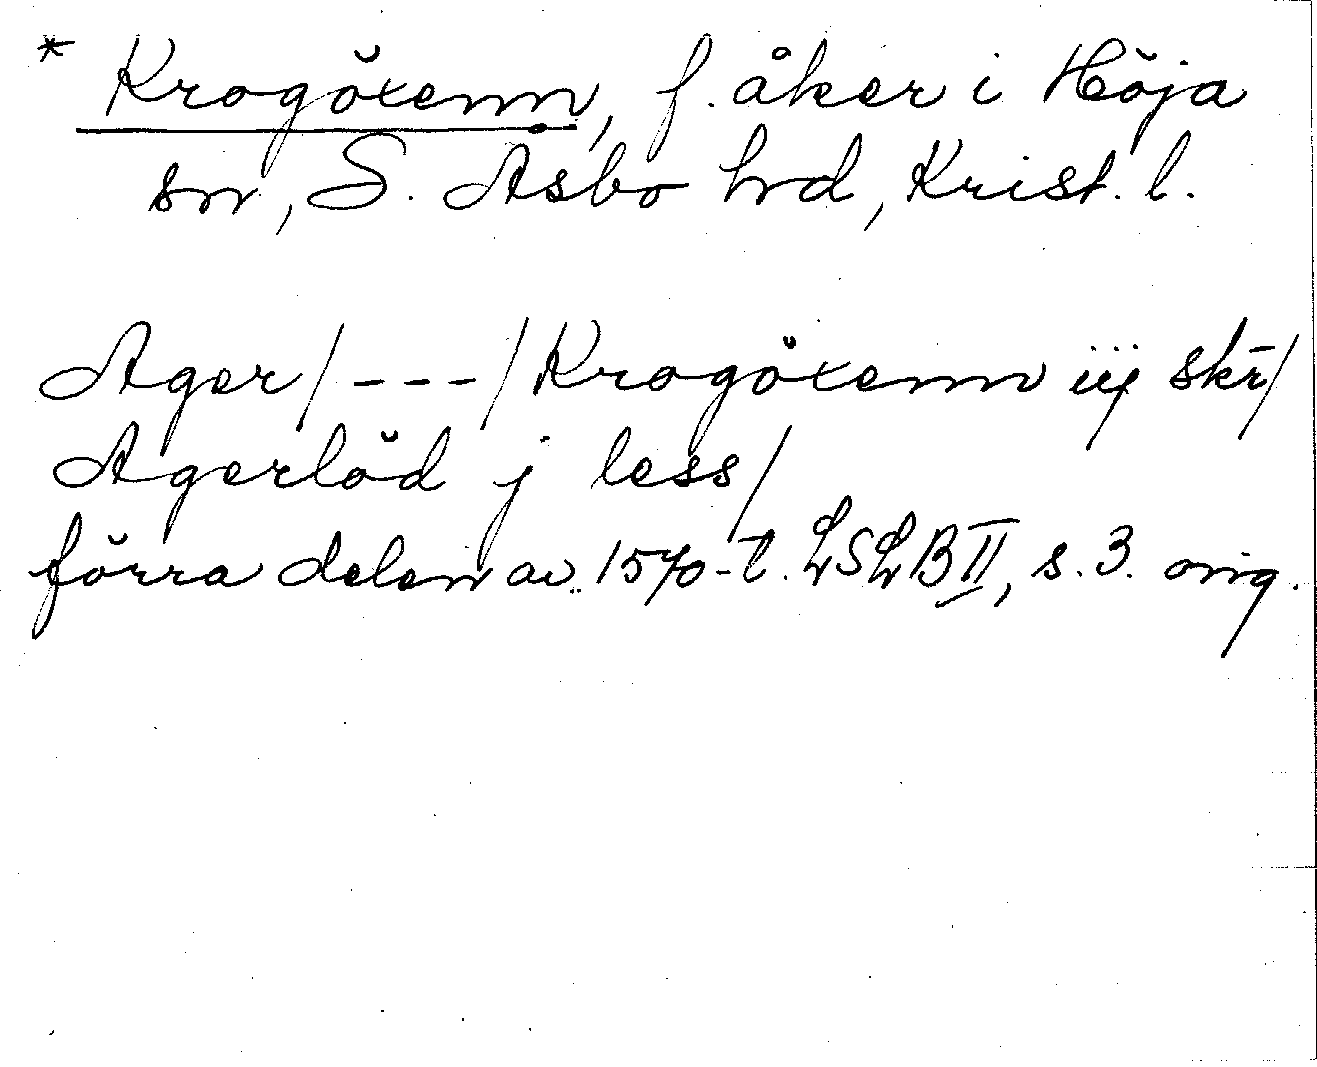 * Krogöxenn, f. åker i Höja
sn, S. Åsbo hrd, Krist. l.
Ager/---/Krogöxenn iij skr̄/
Agerlöd j less/
förra delen av 1570-t. LSLB II, s. 3. orig.